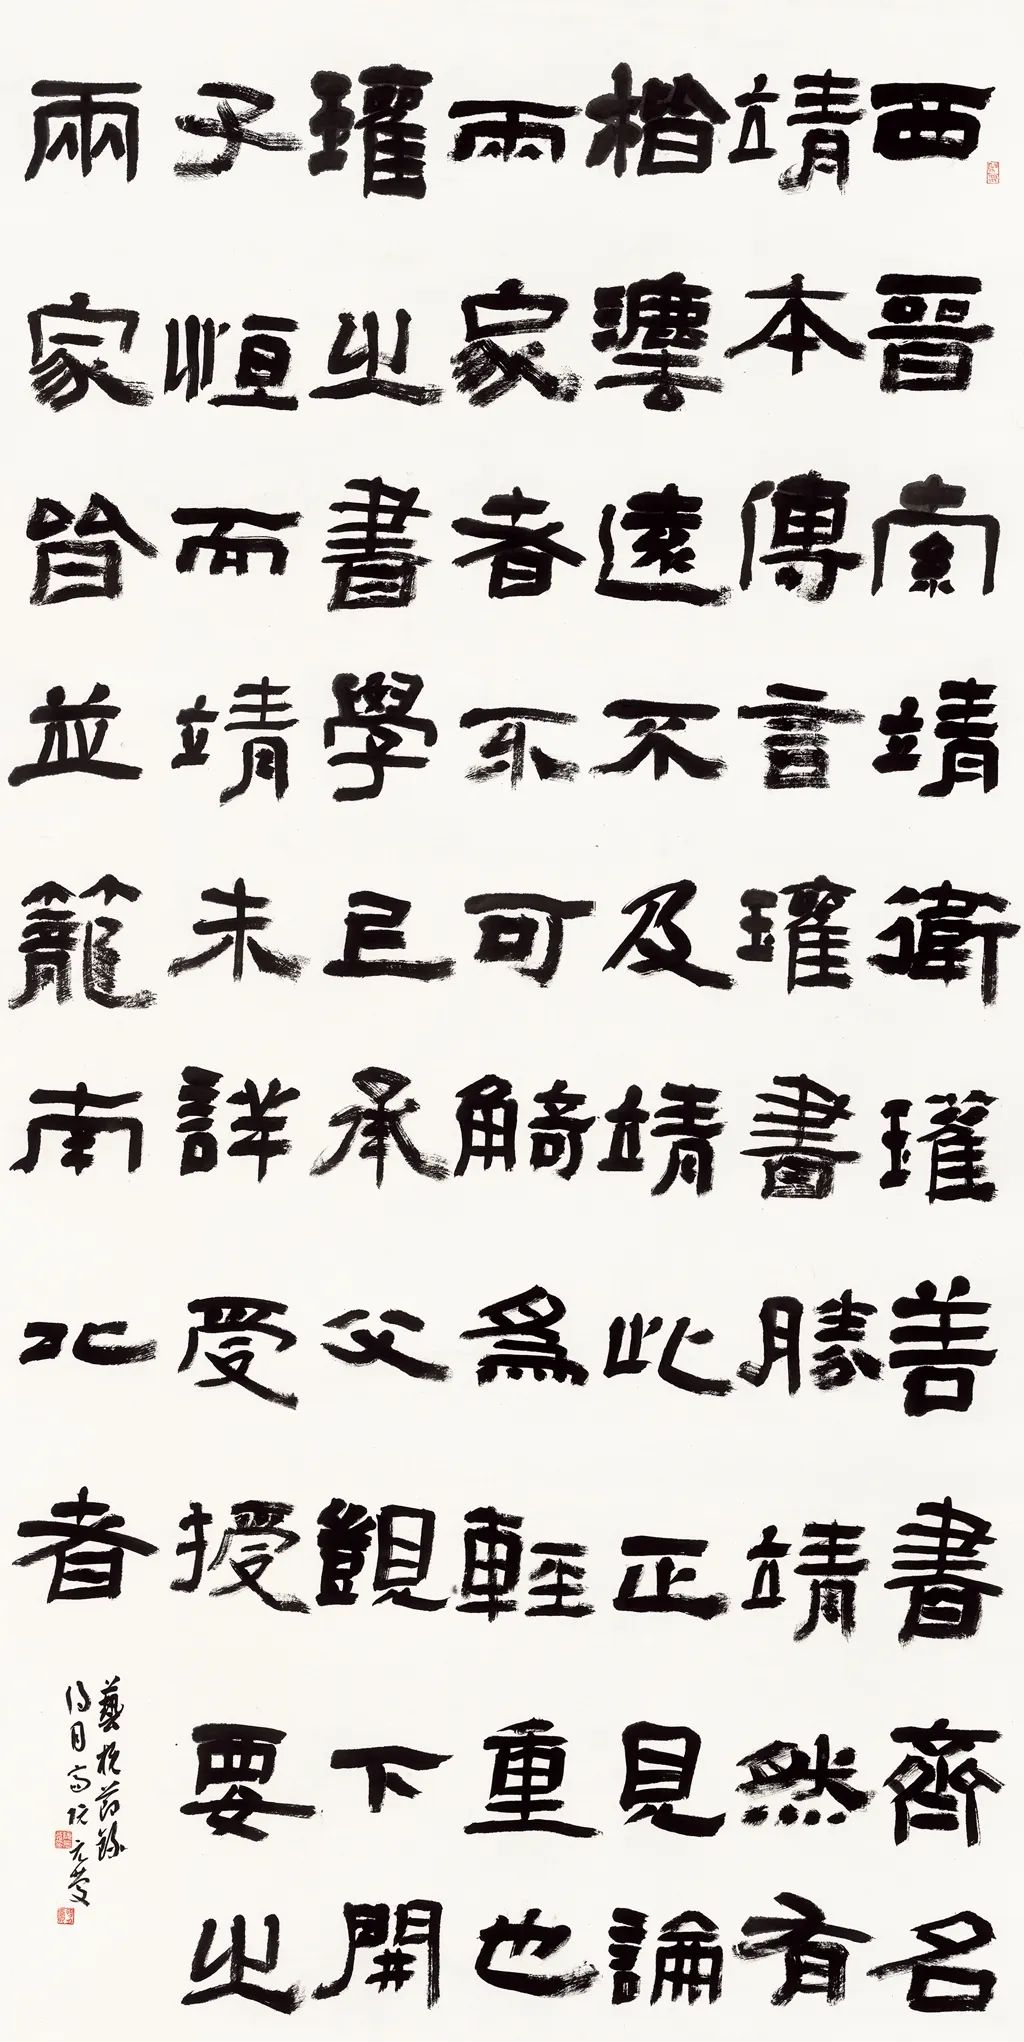 西晉索靖衛瓘善書齊名
靖本傳言瓘書勝靖然有
楷灋遠不及靖此正見論
兩家者不可觭爲輕重也
瓘之書學已承父覬下開
子恒而靖未詳受授要之
兩家皆並籠南北者
藝概節錄